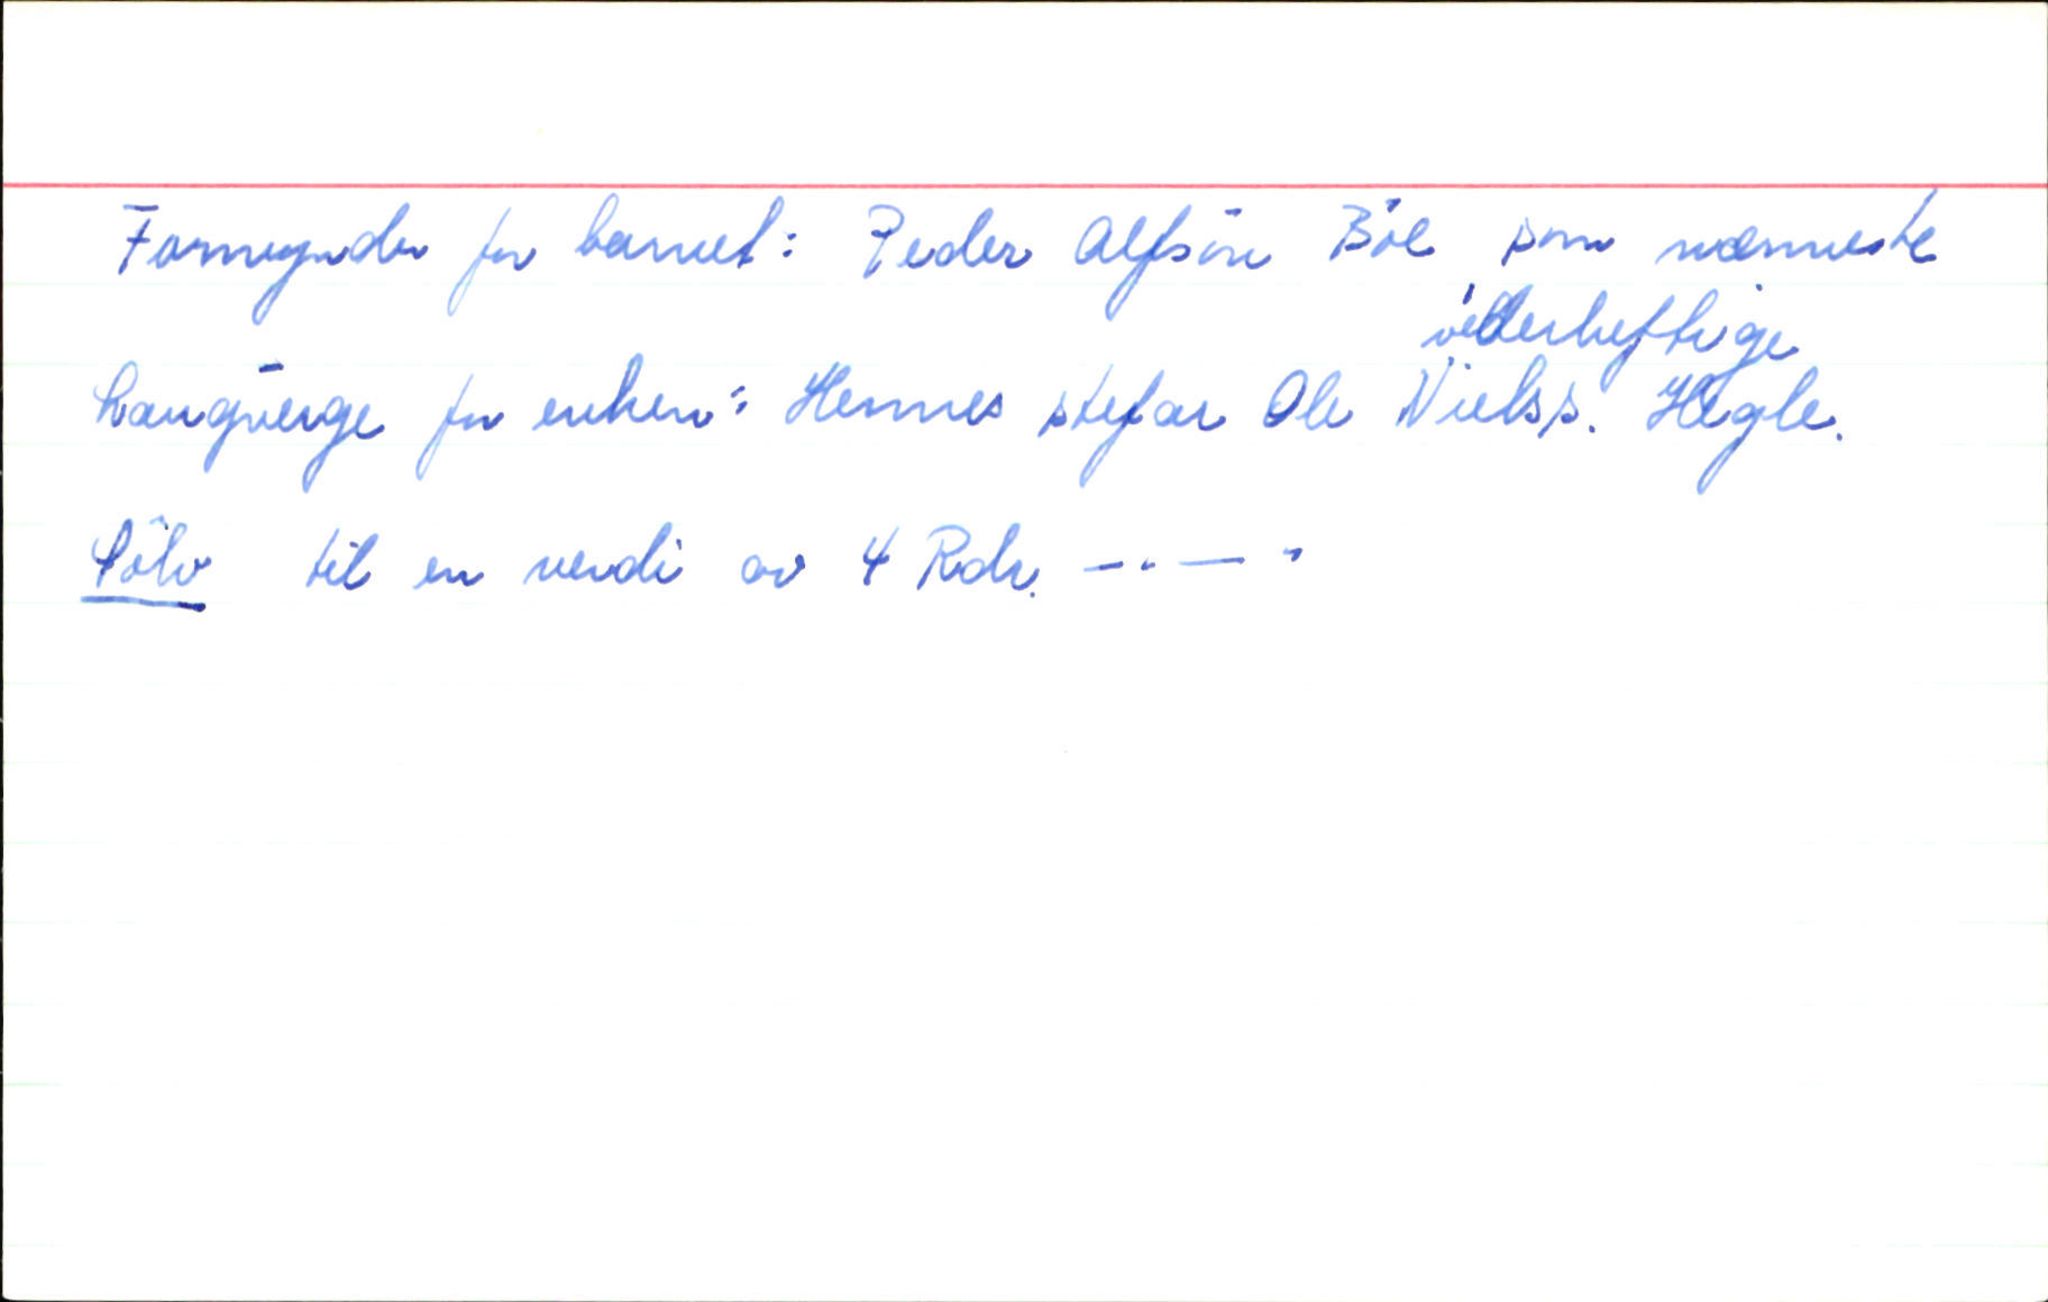 Formynder for barnet: Peder Alfsön Böe som næmneste
vederheftige
Laugverge for enken: Hennes stefar Ole Nielss. Hegle.
Sölv til en verdi av 4 Rdr. -··-·